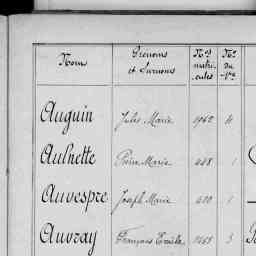 Noms Prénoms et Surnoms Nos matri-cules No du Vre
Auguin Jules Marie 1962 4
Aulnette Pierre Marie 448 1
Auvespre Joseph Marie 410 1
Auvray François 1468 3